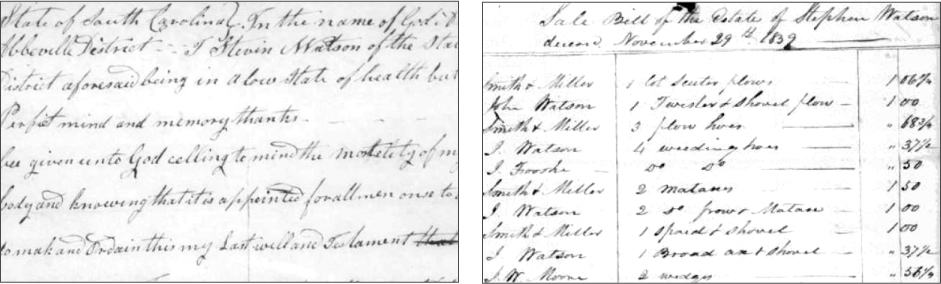 State of South Carolina In the name of God
Abbeville District -- I Stivin Watson of the Stat
District aforesaid being in a low State of health but
Perfict mind and memory thanks -
bee given unto God celling to mind the mostelity of my
body and knowing that it is appointed for all men once to
to mak and Ordain this my Last will and Testament that
Sale Bill of the Estate of Stephen Watson
decesd. November 29th. 1839
Smith & Miller 1 lot Scuter plows 1 06 1/4
John Watson 1 Twister & Shovel plow - 1 00
Smith & Miller 3 plow hoes " 68 3/4
J. Watson 4 weeding hoes " 37 1/2
J. Do Do " 50
Smith & Miller 2 Mataxes 1 50
J. Watson 2 Do frow & Matax 1 00
Smith & Miller 1 Spaid & Shovel 1 00
J. Watson 1 Broad ax & Shovel " 37 1/2
J. W. Moore 2 wedges " 56 1/4